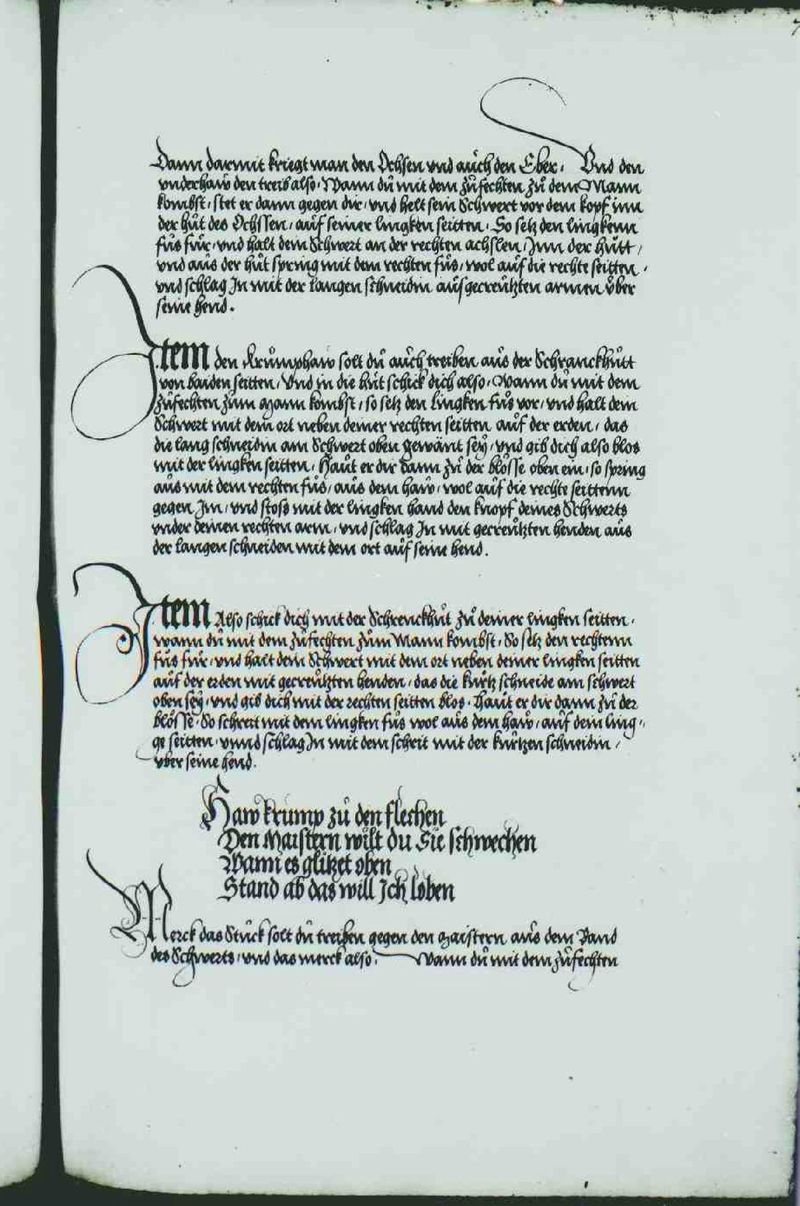 Dann darmit kriegt man den Ochsen vnd auch den Eber. Vnd den
vnderhaw den treib also. Wann dů mit dem zůfechten zů dem Mann
kombst, stet er dann gegen dir, vnd helt sein Schwert vor dem kopf inn
der hůt des Ochssen, auf seiner lingken seitten. So setz den lingkenn
fůs fůr, vnd halt dein Schwert an der rechten achslen, Inn der hůtt,
vnd aus der hůt spring mit dem rechten fůs, wol auf die rechte seitten,
vnd schlag In mit der langen schneidin ausgecreůtzten armen ůber
seine hend.
Item den Krůmphaw solt dů auch treiben aus der Schranckhůtt
von baiden seitten, Vnd in die hůt schick dich also, Wann dů mit dem
zůfechten zům Mann kombst, so setz den lingken fůs vor, vnd halt dein
Schwert mit dem ort neben deiner rechten seitten auf der erden, das
die lang schneidin am Schwert oben gewänt seÿ, vnd gib dich also blos
mit der lingken seitten, Haut er dir dann zů der blosse oben ein, so spring
aus mit dem rechten fůs, aus dem haw, wol auf die rechte seittenn
gegen Im, vnd stoss mit der lingken hand den knopf deines Schwerts
vnder deinen rechten arm, vnd schlag In mit gecreůtzten henden aus
der langen schneiden mit dem ort auf seine hend.
Item Also schick dich mit der Schrenckhůt zů deiner lingken seitten,
wann dů mit dem zůfechten zům Mann kombst, So setz den rechtenn
fůs fůr, vnd halt dein Schwert mit dem ort neben deiner lingken seitten
auf der erden mit gecreůtzten henden, das die kůrtz schneide am schwert
oben seÿ, vnd gib dich mit der rechten seitten blos, Haut er dir dann zů der
blösse, So schreit mit dem lingken fůs wol aus dem haw, auf dem ling-
ge seitten, vnnd schlag In mit dem schrit mit der kůrtzen schneidin,
vber seine hend.
Haw krump zů den flechen
Den Maistern wilt du Sie schwechen
Wann es glitzet oben
Stand ab das will Ich loben
Merck das Stůck solt dů treiben gegen den Maistern aus dem Band
des Schwerts, vnd das merck also. Wann dů mit dem zůfechten